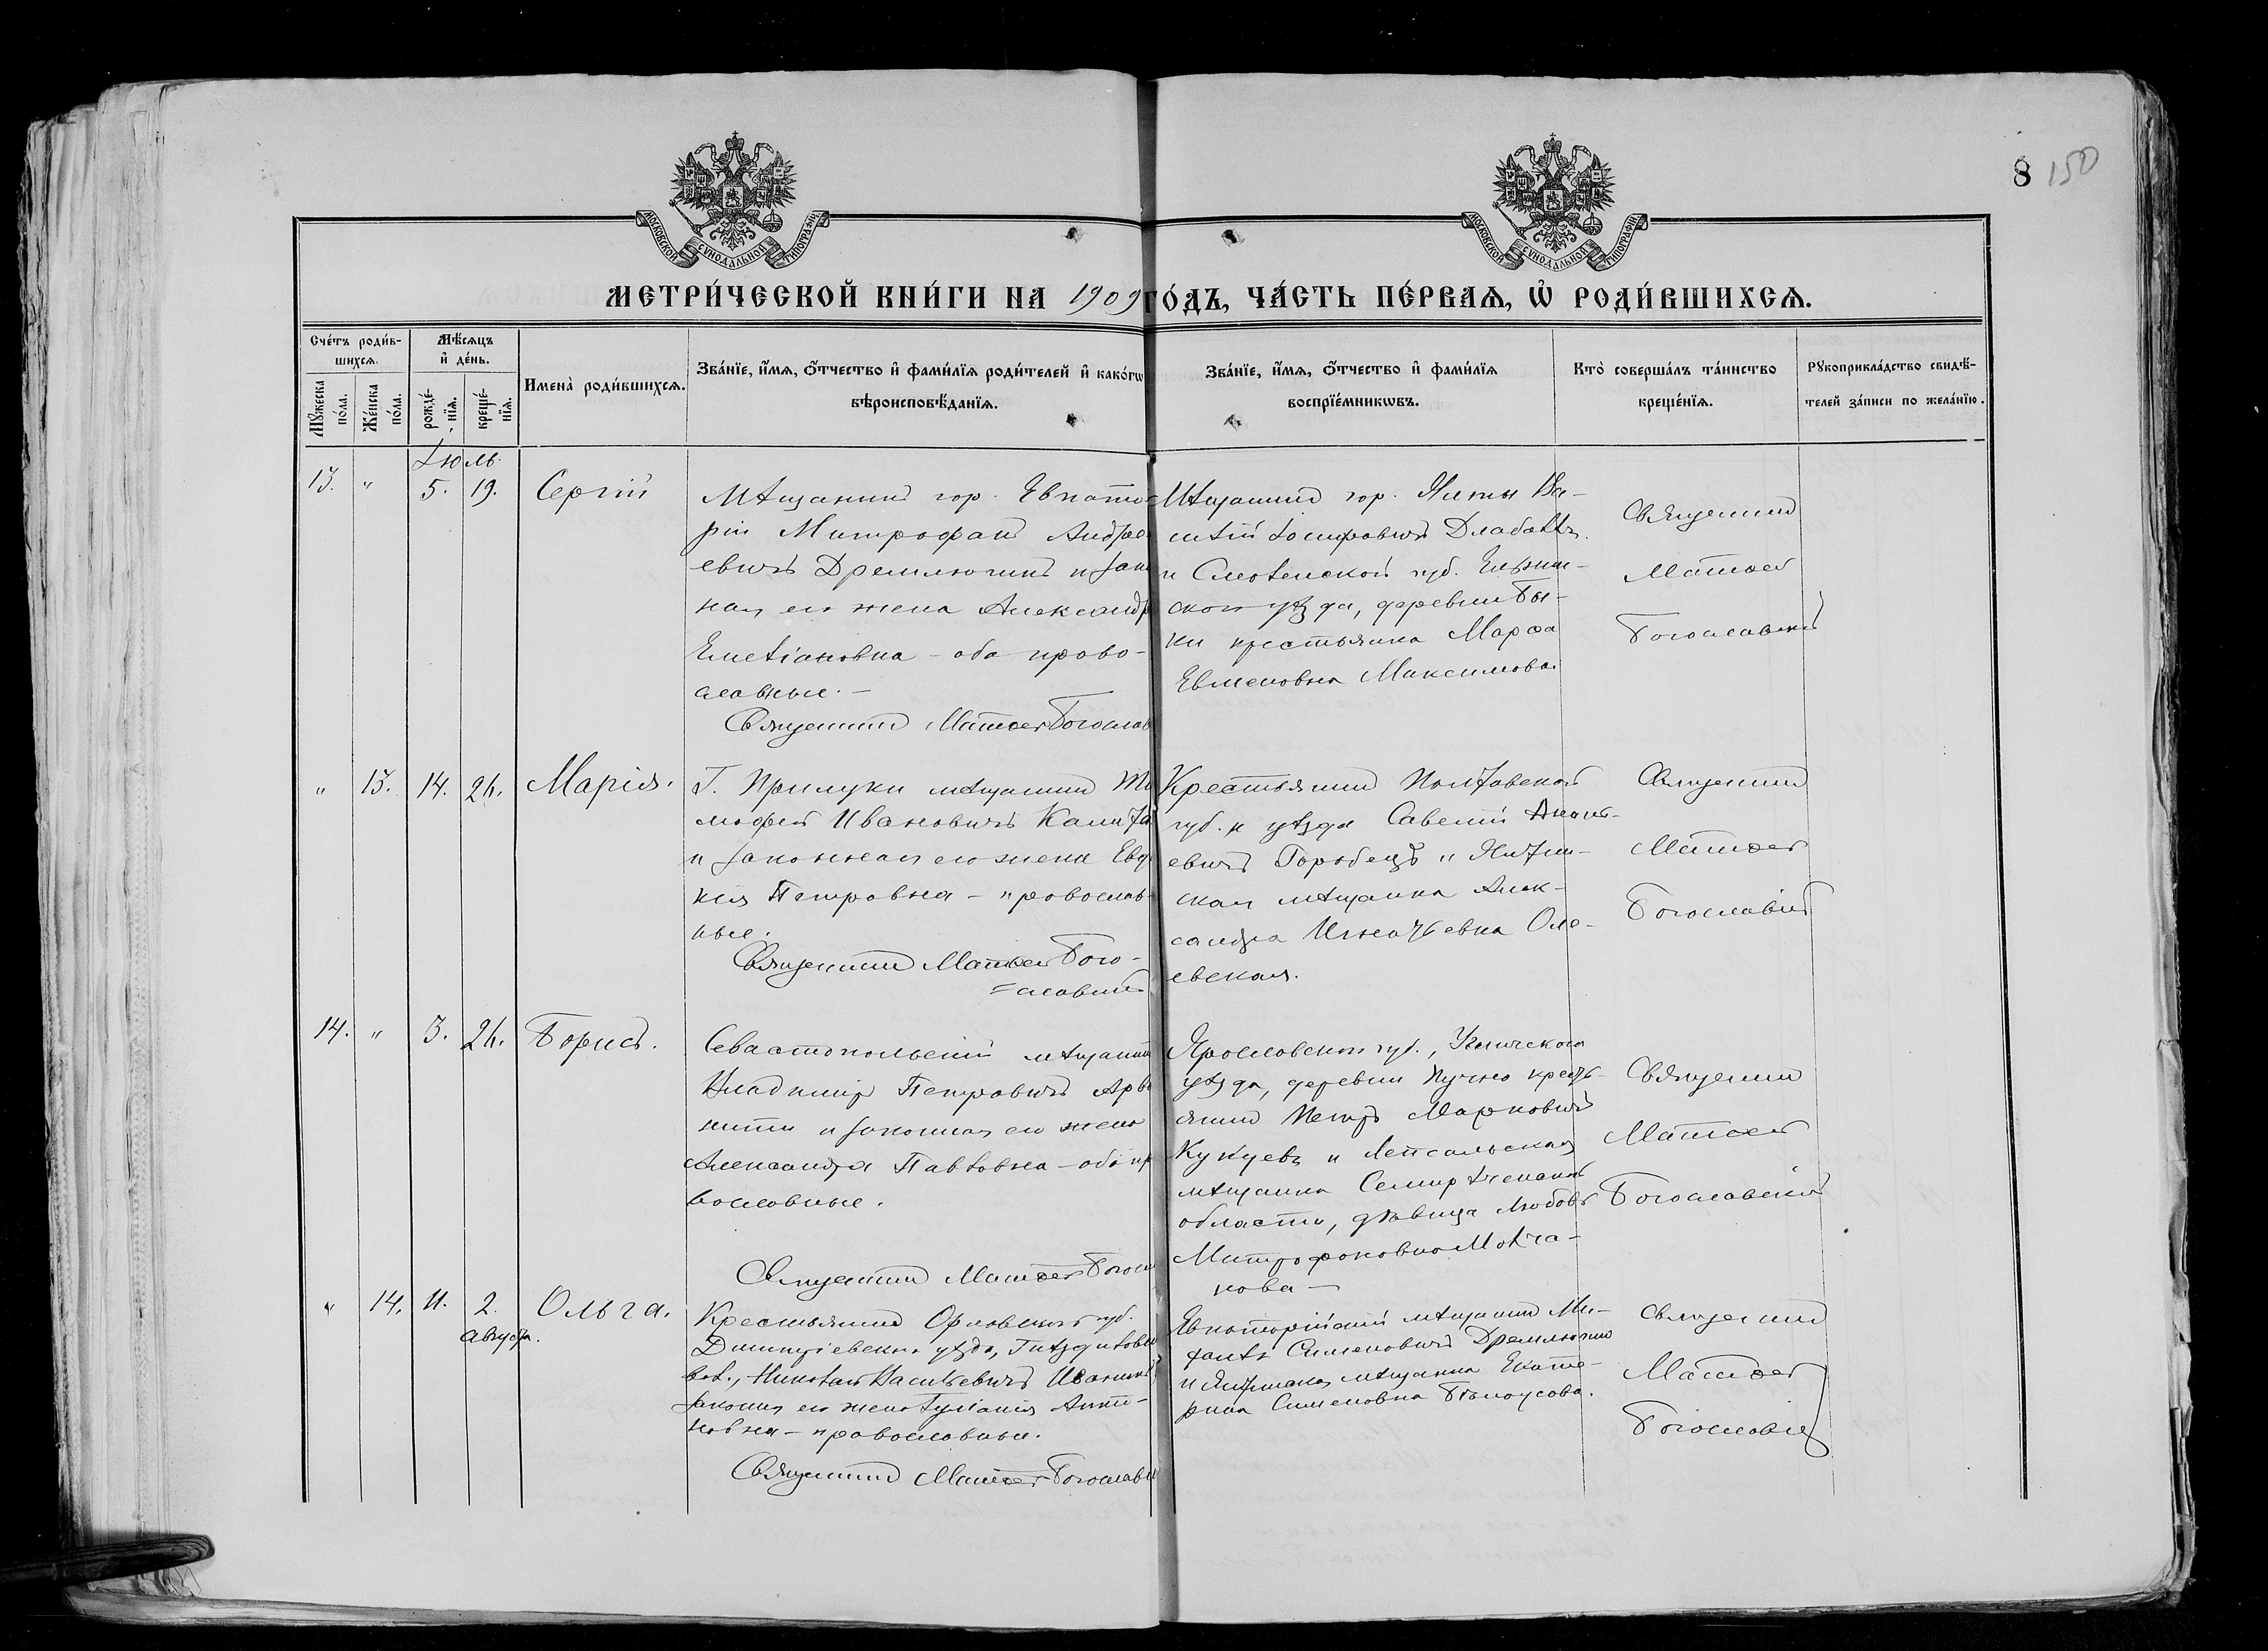 8 150
МОСКОВСКОЙ СУНОДАЛЬНОЙ ТИПОГРАФІИ
МОСКОВСКОЙ СУНОДАЛЬНОЙ ТИПОГРАФІИ
МЕТРИ́ЧЕСКОЙ КНИ́ГИ НА 1909 ГО́ДЪ, ЧА́СТЬ ПЕ́РВАѦ, Ѡ҆ РОДИ́ВШИХСѦ.
Сче́тъ роди́в-
шихсѧ.
Мꙋ́жеска по́ла.
Же́нска по́ла.
Мѣ́сѧцъ
и҆ де́нь.
рожде́-
нїѧ.
креще́-
нїѧ.
Имена̀ роди́вшихсѧ.
Зва́нїе, и҆́мѧ, ѻ҆́тчество и҆ фами́лїѧ роди́телей и҆ како́гѡ
вѣроисповѣ́данїѧ.
Зва́нїе, и҆́мѧ, ѻ҆́тчество и҆ фами́лїѧ
воспрїе́мникѡвъ.
Кто̀ соверша́лъ та́инство
креще́нїѧ.
Рꙋкоприкла́дство свидѣ́-
телей за́писи по жела́нїю.
Іюль.
13. " 5. 19. Сергій
Мѣщанинъ гор. Евпато
ріи Митрофанъ Андре
евичъ Дремлюгинъ и зако
ная его жена Александр
Емеліановна – оба право-
славные. –
Священникъ Матѳей Богослов
Мѣщанинъ гор. Ялты Ва-
силій
и Смоленской губ. Ельнин-
ской уѣзда, деревни Бы-
ки крестьянка Марѳа
Евменовна Максимова.
Священникъ
Матѳей
Богославскій
" 13. 14. 26. Марія.
Г. Прилуки мѣщанинъ Ти
моѳей Ивановичъ Калита
и законная его жена Евдо
кія Петровна – православ-
ные.
Священникъ Матѳей Бого-
=славскій
Крестьянинъ Полтавской
губ. и уѣзда Савелій
евичъ Горобецъ и Ялтин-
ская мѣщанка Алек-
сандра Игнатьевна Оле-
евская.
Священникъ
Матѳей
Богославскій
14. " 3. 26. Борисъ.
Севастопольскій мѣщанин
Владиміръ Петровичъ Арва
нити и законная его жена
Александра Павловна – оба пр
вославные.
Священникъ Матѳей Богосл
Ярославской губ., Угличскаго
уѣзда, деревни Пучно кресть-
янинъ Петръ Марковичъ
и Лепсальская
мѣщанка Семирѣченской
области, дѣвица Любовь
Митрофановна Молча-
нова –
Священникъ
Матѳей
Богославскій
" 14. 11. 2. Ольга.
августа.
Крестьянинъ Орловской губ.
Дмитріевскаго уѣзда,
вол., Николай Васильевичъ Иванинъ
законная его жена Іуліанія Анти-
новна – православные.
Священникъ Матѳей Богославск
Евпаторійскій мѣщанинъ Ми-
Симеоновичъ Дремлюгинъ
и Ялтинская мѣщанка Екате-
рина Симеоновна Бѣлоусова.
Священникъ
Матѳей
Богославскій